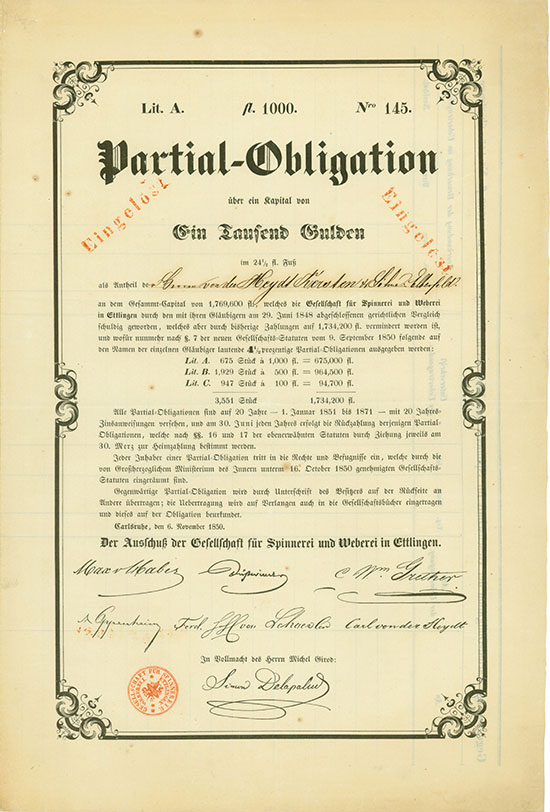 Lit. A. fl. 1000. Nro 145.
Partial-Obligation
über ein Kapital von
Ein Tausend Gulden
im 24½ fl. Fuß
als Antheil der Herren von der Heydt Kersten & Söhne Elberfeld
an dem Gesammt-Capital von 1,769,600 fl., welches die Gesellschaft für Spinnerei und Weberei
in Ettlingen durch den mit ihren Gläubigern am 29. Juni 1848 abgeschlossenen gerichtlichen Vergleich
schuldig geworden, welches aber durch bisherige Zahlungen auf 1,734,200 fl. vermindert worden ist,
und wofür nunmehr nach §. 7 der neuen Gesellschafts-Statuten vom 9. September 1850 folgende auf
den Namen der einzelnen Gläubiger lautende 4½ prozentige Partial-Obligationen ausgegeben werden:
Lit. A. 675 Stück à 1,000 fl. = 675,000 fl.
Lit. B. 1,929 Stück à 500 fl. = 964,500 fl.
Lit. C. 947 Stück à 100 fl. = 94,700 fl.
3,551 Stück 1,734,200 fl.
Alle Partial-Obligationen sind auf 20 Jahre — 1. Januar 1851 bis 1871 — mit 20 Jahres-
Zinsanweisungen versehen, und am 30. Juni jeden Jahres erfolgt die Rückzahlung derjenigen Partial-
Obligationen, welche nach §§. 16 und 17 der obenerwähnten Statuten durch Ziehung jeweils am
30. Merz zur Heimzahlung bestimmt werden.
Jeder Inhaber einer Partial-Obligation tritt in die Rechte und Befugnisse ein, welche durch die
von Großherzoglichem Ministerium des Innern unterm 16. October 1850 genehmigten Gesellschafts-
Statuten eingeräumt sind.
Gegenwärtige Partial-Obligation wird durch Unterschrift des Besitzers auf der Rückseite an
Andere übertragen; die Uebertragung wird auf Verlangen auch in die Gesellschaftsbücher eingetragen
und dieses auf der Obligation beurkundet.
Carlsruhe, den 6. November 1850.
Der Ausschuß der Gesellschaft für Spinnerei und Weberei in Ettlingen.
Max v Haber
Carl von der Heydt
In Vollmacht des Herrn Michel Girod:
Eingelöst
Eingelöst